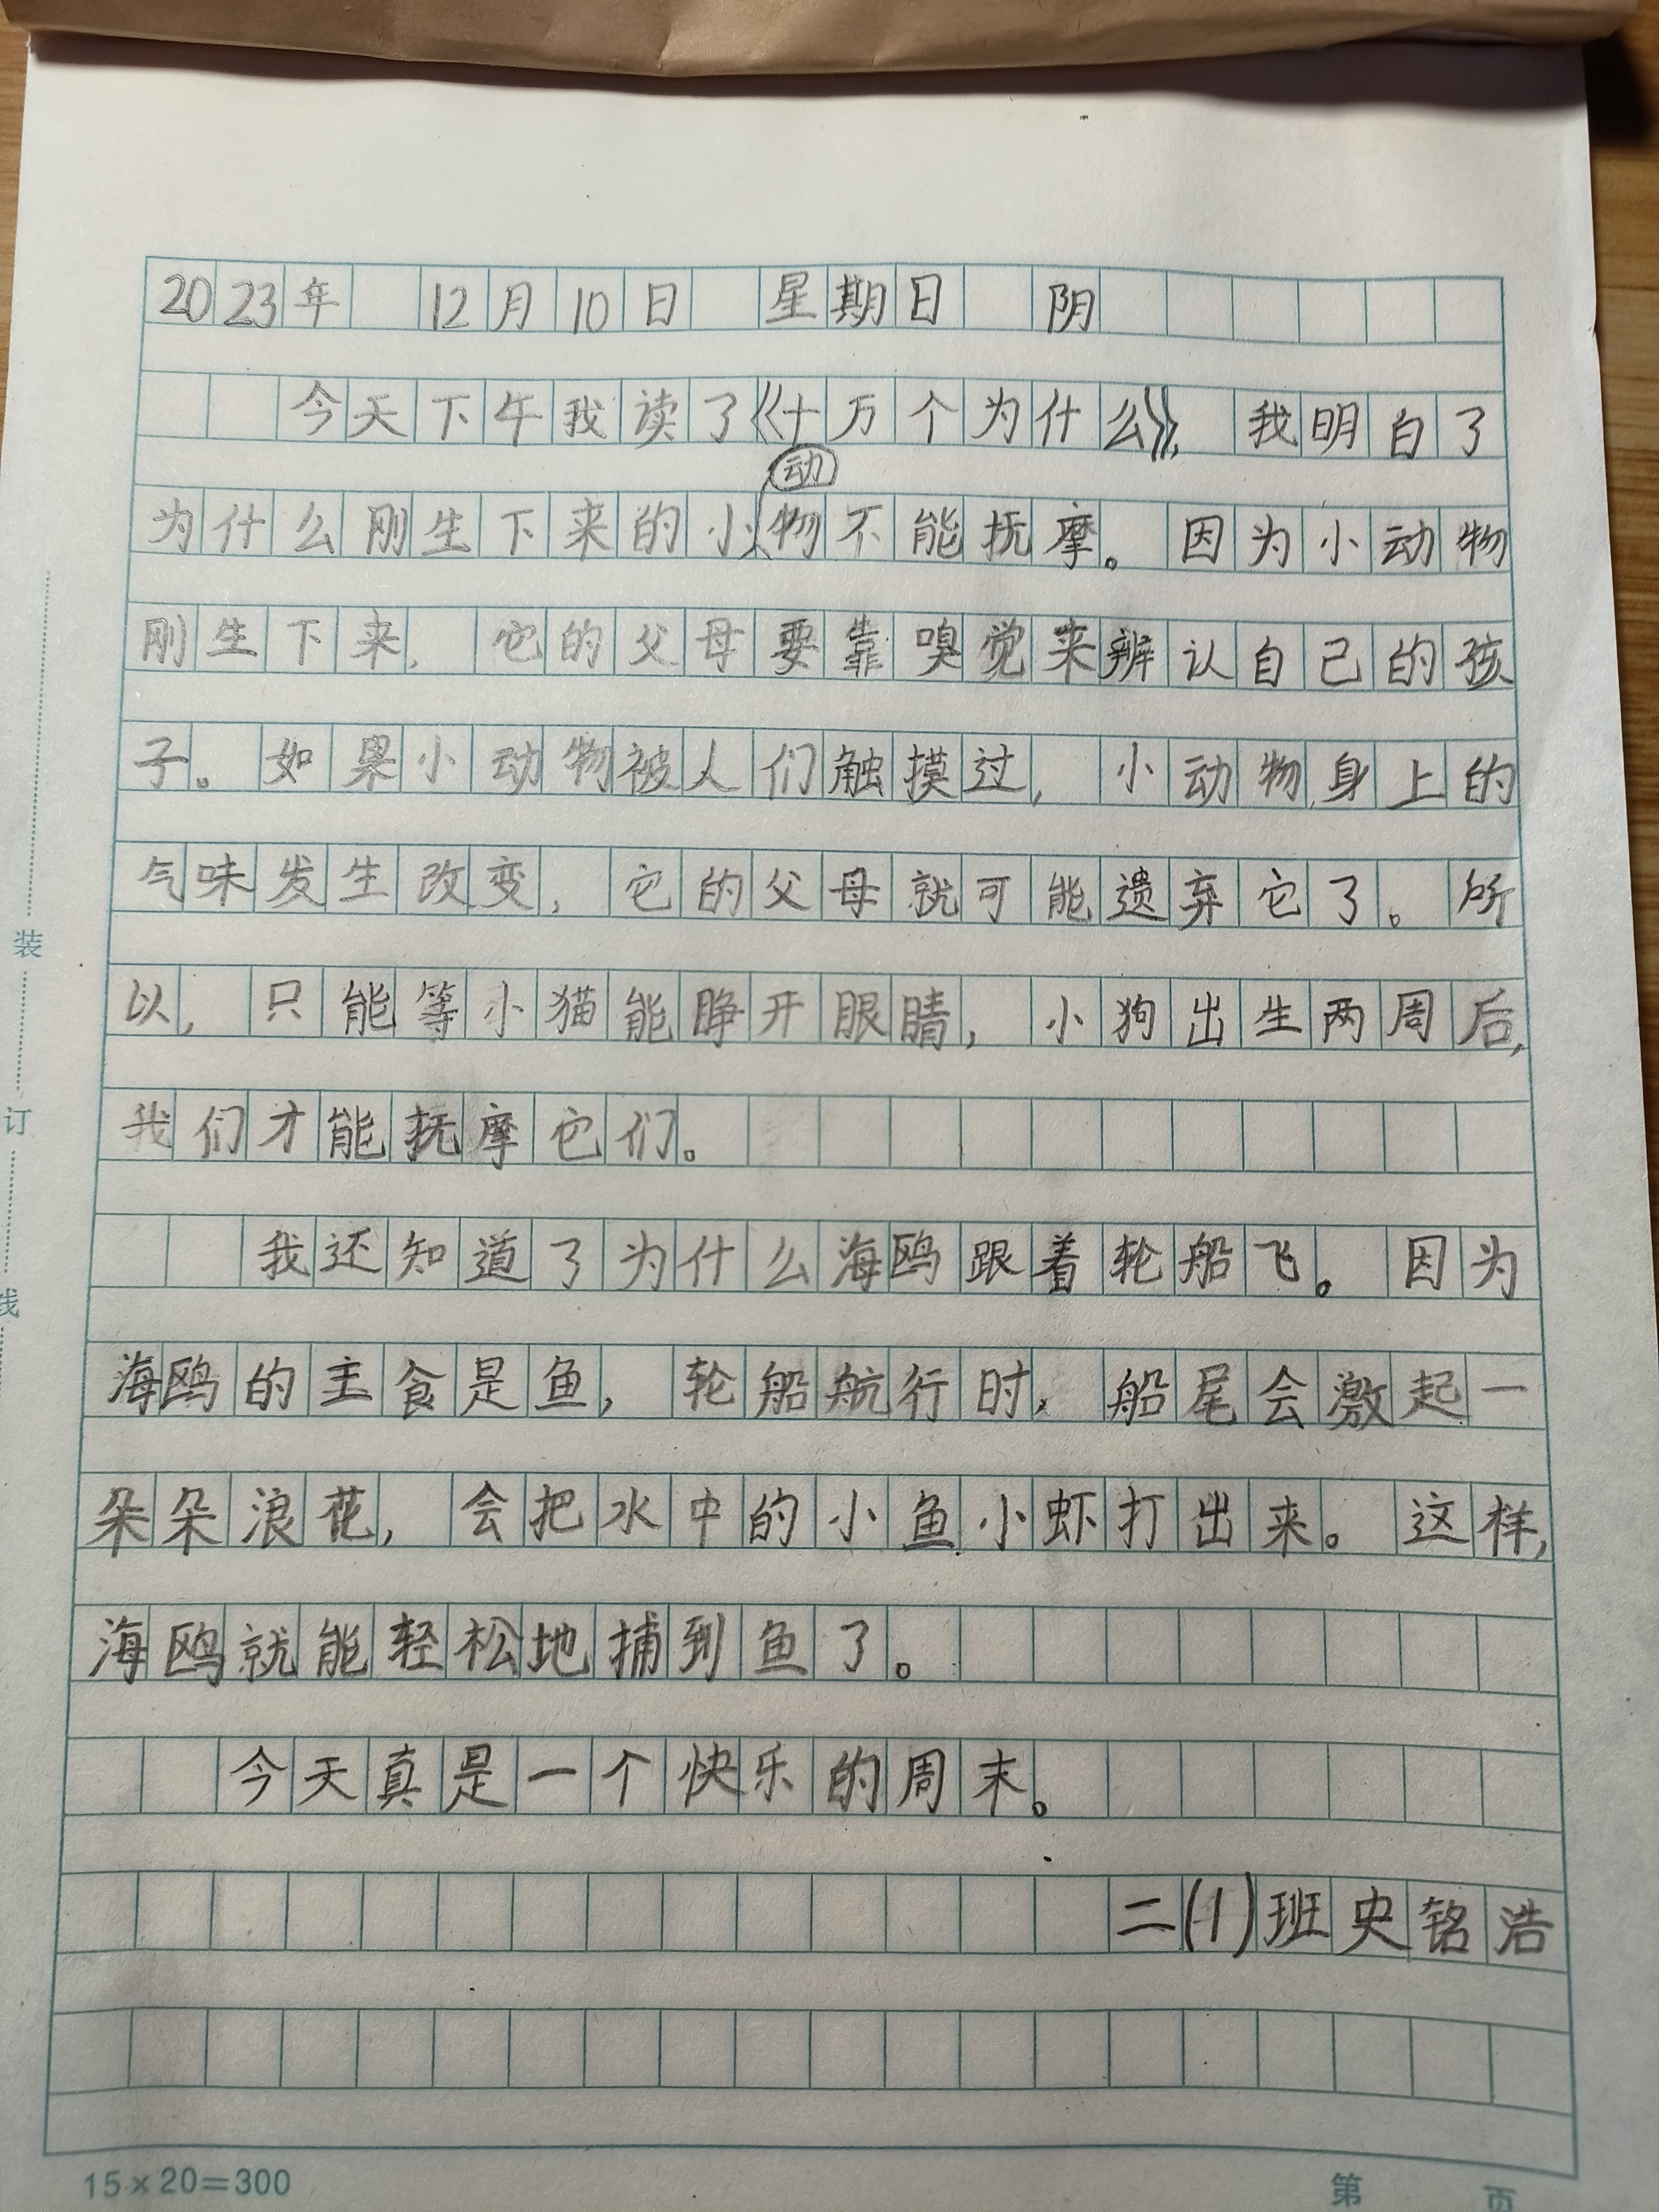 2023年 12月10日 星期日 阴
今天下午我读了《十万个为什么》，我明白了
为什么刚生下来的小动物不能抚摩。因为小动物
刚生下来，它的父母要靠嗅觉来辨认自己的孩
子。如果小动物被人们触摸过，小动物身上的
气味发生改变，它的父母就可能遗弃它了。所
以，只能等小猫能睁开眼睛，小狗出生两周后，
我们才能抚摩它们。
我还知道了为什么海鸥跟着轮船飞。因为
海鸥的主食是鱼，轮船航行时，船尾会激起一
朵朵浪花，会把水中的小鱼小虾打出来。这样，
海鸥就能轻松地捕到鱼了。
今天真是一个快乐的周末。
二(1)班史铭浩
装
订
线
15×20=300
第 页